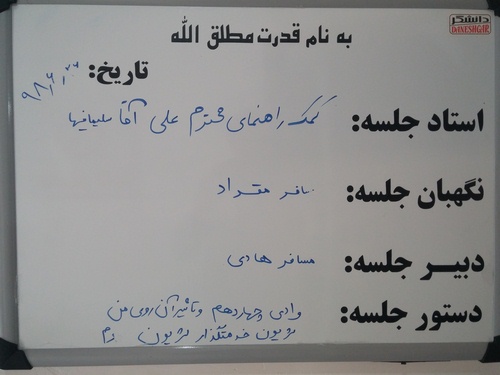 دانشگر
DANESHGAR
به نام قدرت مطلق الله
تاریخ: ۹۸/۶/۲۶
استاد جلسه: کمک راهنمای محترم علی آقا
نگهبان جلسه: مسافر مقداد
دبیر جلسه: مسافر هادی
دستور جلسه: وادی چهاردهم و تاثیر آن روی من
لژیون خدمتگذار لژیون